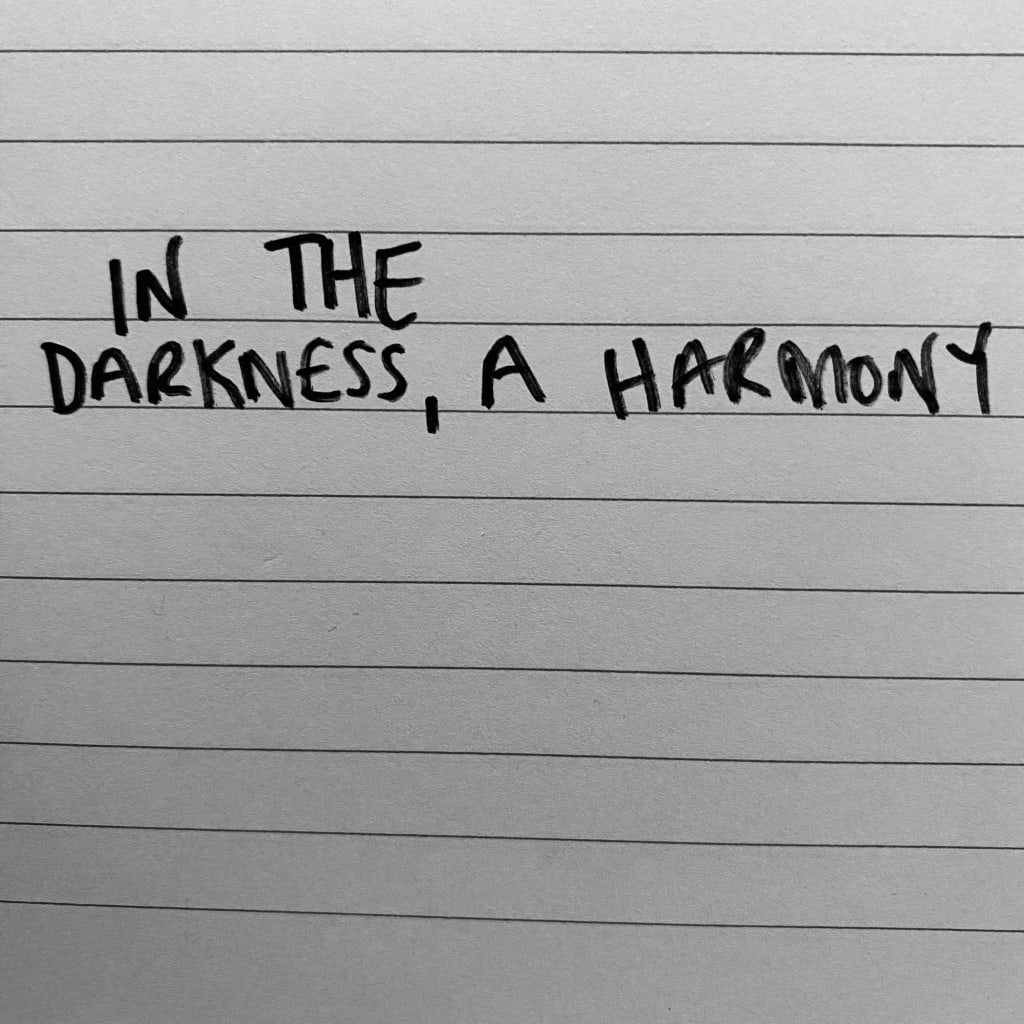 IN THE
DARKNESS, A HARMONY